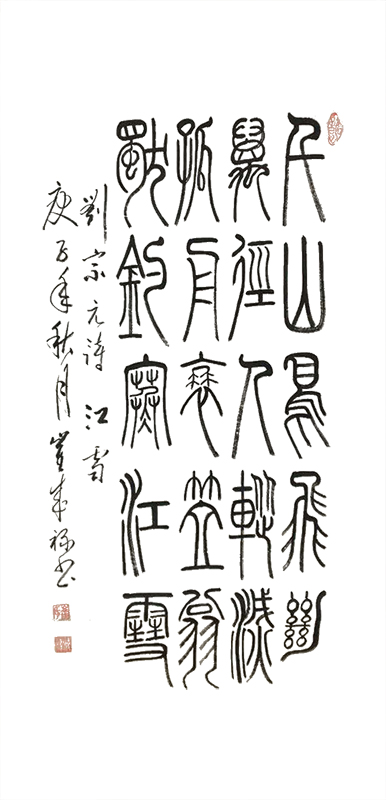 千山鳥飛絕
萬徑人蹤滅
孤舟蓑笠翁
獨釣寒江雪
劉宗元詩 江雪
庚子年秋月 书